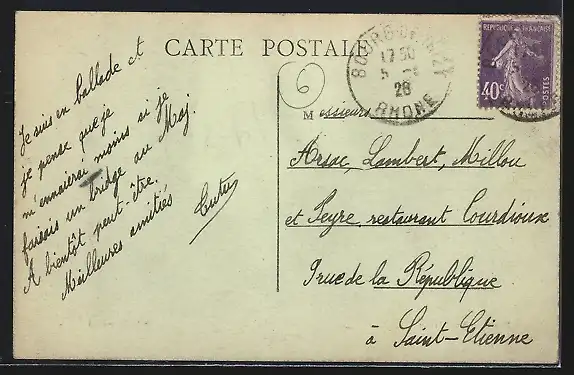 CARTE POSTALE
Je suis en ballade et
je pense que je
m'ennuierai moins si je
faisais un bridge au Maj.
A bientôt peut-être.
Meilleures amitiés
BOURG DE THIZY
17 30
5
28
RHONE
REPUBLIQUE FRANÇAISE
40c
POSTES
Messieurs
Arsac, Lambert, Millou
et Peyre restaurant Courdioux
rue de la République
à Saint-Etienne
6